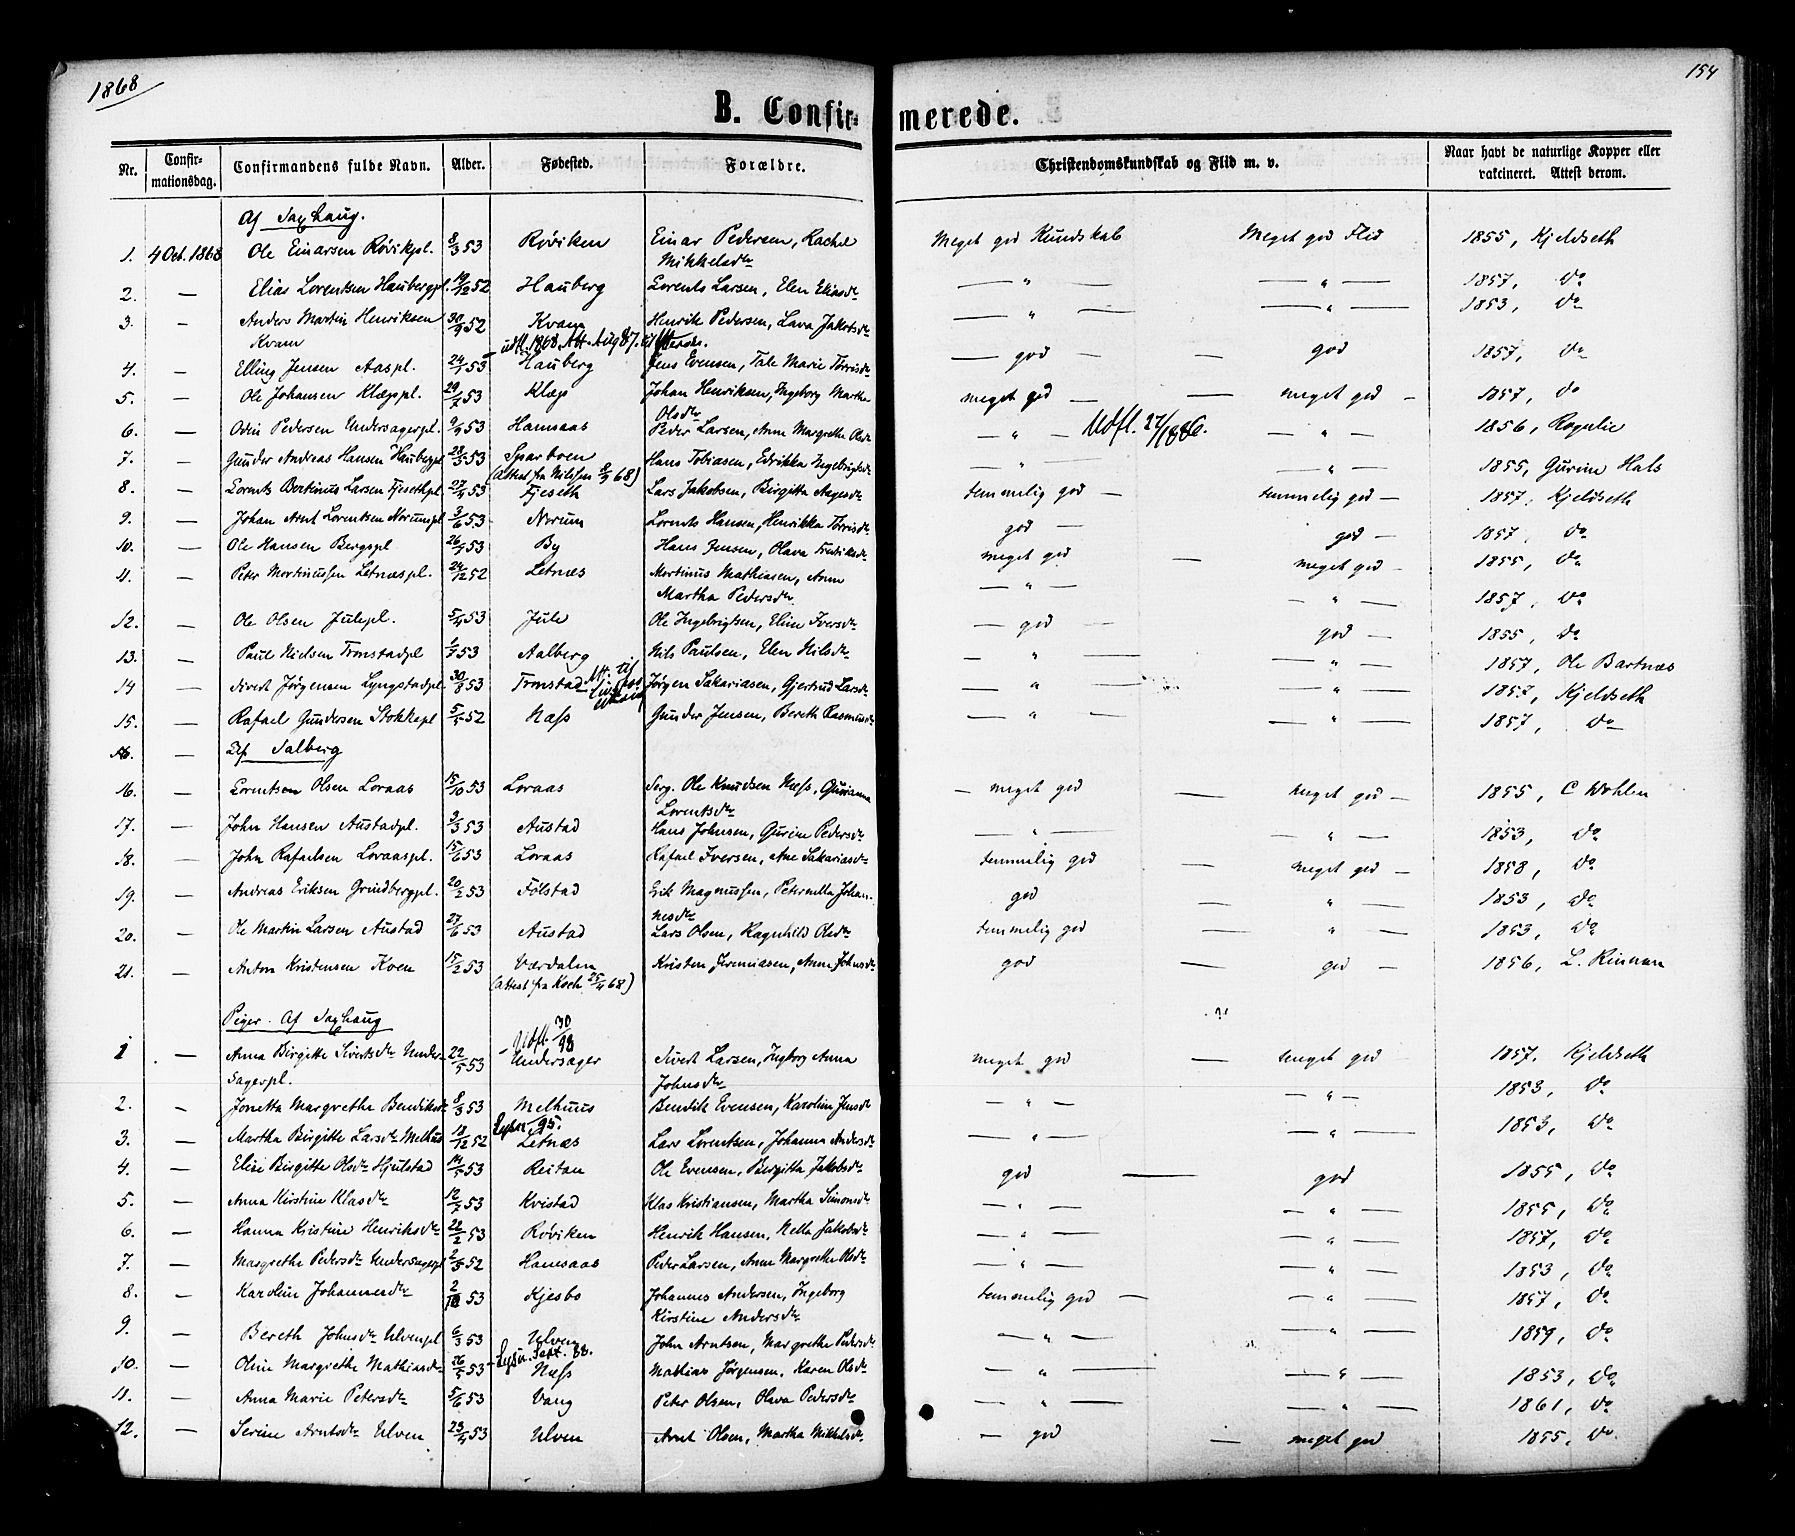 1868
154
B. Confirmerede.
Nr. Confirmationsdag. Confirmandens fulde Navn. Alder. Fødested. Forældre. Christendomskundskab og Flid m. v. Naar havt de naturlige Kopper eller vakcineret. Attest derom.
Af Saxhaug.
1. 4 Oct. 1868 Ole Einarsen Røvikpl. 8/3 53 Røviken Einar Pedersen, Rachel Mikkelsdr Meget god Kundskab Meget god Flid 1855, Kjeldseth
2. — Elias Lorentsen Haubergpl. 19/12 52 Hauberg Lorents Larsen, Elen Eliasdr — " — — " — 1857, do
3. — Anders Martin Henriksen Kvam 30/9 52 Kvam Henrik Pedersen, Lava Jakobsdr — " — — " — 1853, do
udfl. 1868. Att. Aug 87.
4. — Elling Jensen Aaspl. 24/1 53 Hauberg Jens Evensen, Tale Marie Torrisdr — god — god 1857, do
5. — Ole Johansen Klæppl. 29/7 53 Klæp Johan Henriksen, Ingeborg Martha Olsdr meget god — — meget god — 1857, do
6. — Odin Pedersen Undersagerpl. 9/9 53 Hamsaas Peder Larsen, Anne Margrethe Olsdr — " — Udfl. 27/1 1886. — " — 1856, Rognlie
7. — Gunder Andreas Hansen Haubergpl 28/3 53 Sparboen Hans Tobiasen, Edrikka Ingebrigtsdr — " — " — 1855, Gurine Hals
(Attest fra Nilssen 8/9 68)
8. — Lorents Bertinus Larsen Fjesethpl. 27/4 53 Fjeseth Lars Jakobsen, Birgitta Aagesdr temmelig god — temmelig god — 1857, Kjeldseth
9. — Johan Arnt Lorentsen Norumpl 3/6 53 Norum Lorents Hansen, Henrikka Torrisdr god — god — 1857, do
10. — Ole Hansen Bergspl 26/1 53 By Hans Jensen, Olava Fredriksdr meget god — meget god — 1855, do
11. — Peter Mortinussen Letnæspl. 24/12 52 Letnæs Mortinus Mathiasen, Anne Martha Pedersdr — " — — " — 1857, do
12. — Ole Olsen Julepl. 5/4 53 Jule Ole Ingebrigtsen, Eline Iversdr — god — god — 1855, do
13. — Paul Nielsen Tronstadpl 1/7 53 Aalberg Nils Paulsen, Elen Nilsdr — " — — " — 1857, Ole Bartnæs
14 — Sivert Jørgensen Lyngstadpl. 30/8 53 Tronstad Jørgen Sakariasen, Gjertrud Larsdr — " — — " — 1857, Kjeldseth
15. — Rafael Gundersen Stokkepl 5/5 52 Næss Gunder Jensen, Bereth Rasmusdr — " — — " — 1857, do
16. — Af Salberg
16. — Lorentsen Olsen Loraas 15/10 53 Loraas Serg. Ole Knudsen Næss, Gurianna Lorentsdr — meget god — meget god — 1855, C Wohlen
17. — John Hansen Austadpl. 2/3 53 Austad Hans Johnsen, Gurine Pedersdr — " — — " — 1853, do
18. — John Rafaelsen Loraaspl. 15/6 53 Loraas Rafael Iversen, Ane Sakariasdr temmelig god — meget god — 1858, do
19. — Andreas Eriksen Grindbergpl. 20/2 53 Følstad Erik Magnussen, Peternella Johannesdr god — " — 1853, do
20. — Ole Martin Larsen Austad 27/6 53 Austad Lars Olsen, Ragnhild Olsdr temmelig god — — " — 1853, do
21. — Anton Kristensen Kven 15/2 53 Værdalen Kristen Jeremiasen, Anne Johnsdr god — god — 1856, L. Rinnan
(Attest fra Koch 25/4 68)
Piger. Af Saxhaug
1 — Anna Birgitte Sivertsdr Undersagerpl. 22/5 53 Undersager Sivert Larsen, Ingborg Anna Johnsdr meget god — meget god — 1857. Kjeldseth
Udfl. 30/ 98
2. — Jonetta Margrethe Bendiksdr 8/3 53 Melhuus Bendik Evensen, Karoline Jensdr — " — — " — 1853, do
3. — Martha Birgitte Larsdr Melhus 18/12 52 Letnæs Lars Lorentsen, Johanna Andersdr — " — — " — 1853, do
Lysn. 95.
4. — Elise Birgitte Olsdr Hjulstad 14/5 53 Reitan Ole Evensen, Bergitta Jakobsdr god — god 1855, do
5. — Anna Kirstine Klasdr 12/7 53 Kvistad Klas Kristiansen, Martha Simonsdr — " — — " — 1855, do
6. — Hanna Kristine Henriksdr 22/2 53 Røviken Henrik Hansen, Nella Jakobsdr — " — — " — 1857, do
7. — Margrethe Pedersdr Undersagerpl 2/5 52 Hamsaas Peder Larsen, Anne Margrethe Olsdr — " — — " — 1853, do
8. — Karoline Johannesdr 2/10 53 Kjesbo Johannes Andersen, Ingeborg Kirstine Andersdr temmelig god — — " — 1857, do
9. — Bereth Johnsdr Ulvenpl 6/3 53 Ulven John Arntsen, Margrethe Pedersdr — " — — " — 1859, do
10. — Oline Margrethe Mathiasdr 26/5 53 Næss Mathias Jørgensen, Karen Olsdr — " — — " — 1853, do
Lysn. Sept. 88.
11. — Anna Marie Petersdr 5/6 53 Vang Peter Olsen, Olava Pedersdr — " — — " — 1861, do
12. — Serine Arntsdr Ulven 23/9 53 Ulven Arnt Olsen, Martha Mikkelsdr — god — meget god 1855, do